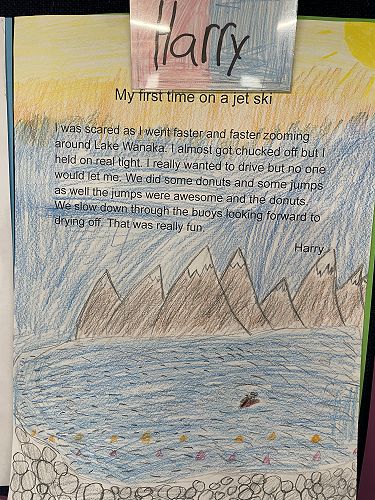 Harry
My first time on a jet ski
I was scared as I went faster and faster zooming
around Lake Wanaka. I almost got chucked off but I
held on real tight. I really wanted to drive but no one
would let me. We did some donuts and some jumps
as well the jumps were awesome and the donuts.
We slow down through the buoys looking forward to
drying off. That was really fun.
Harry